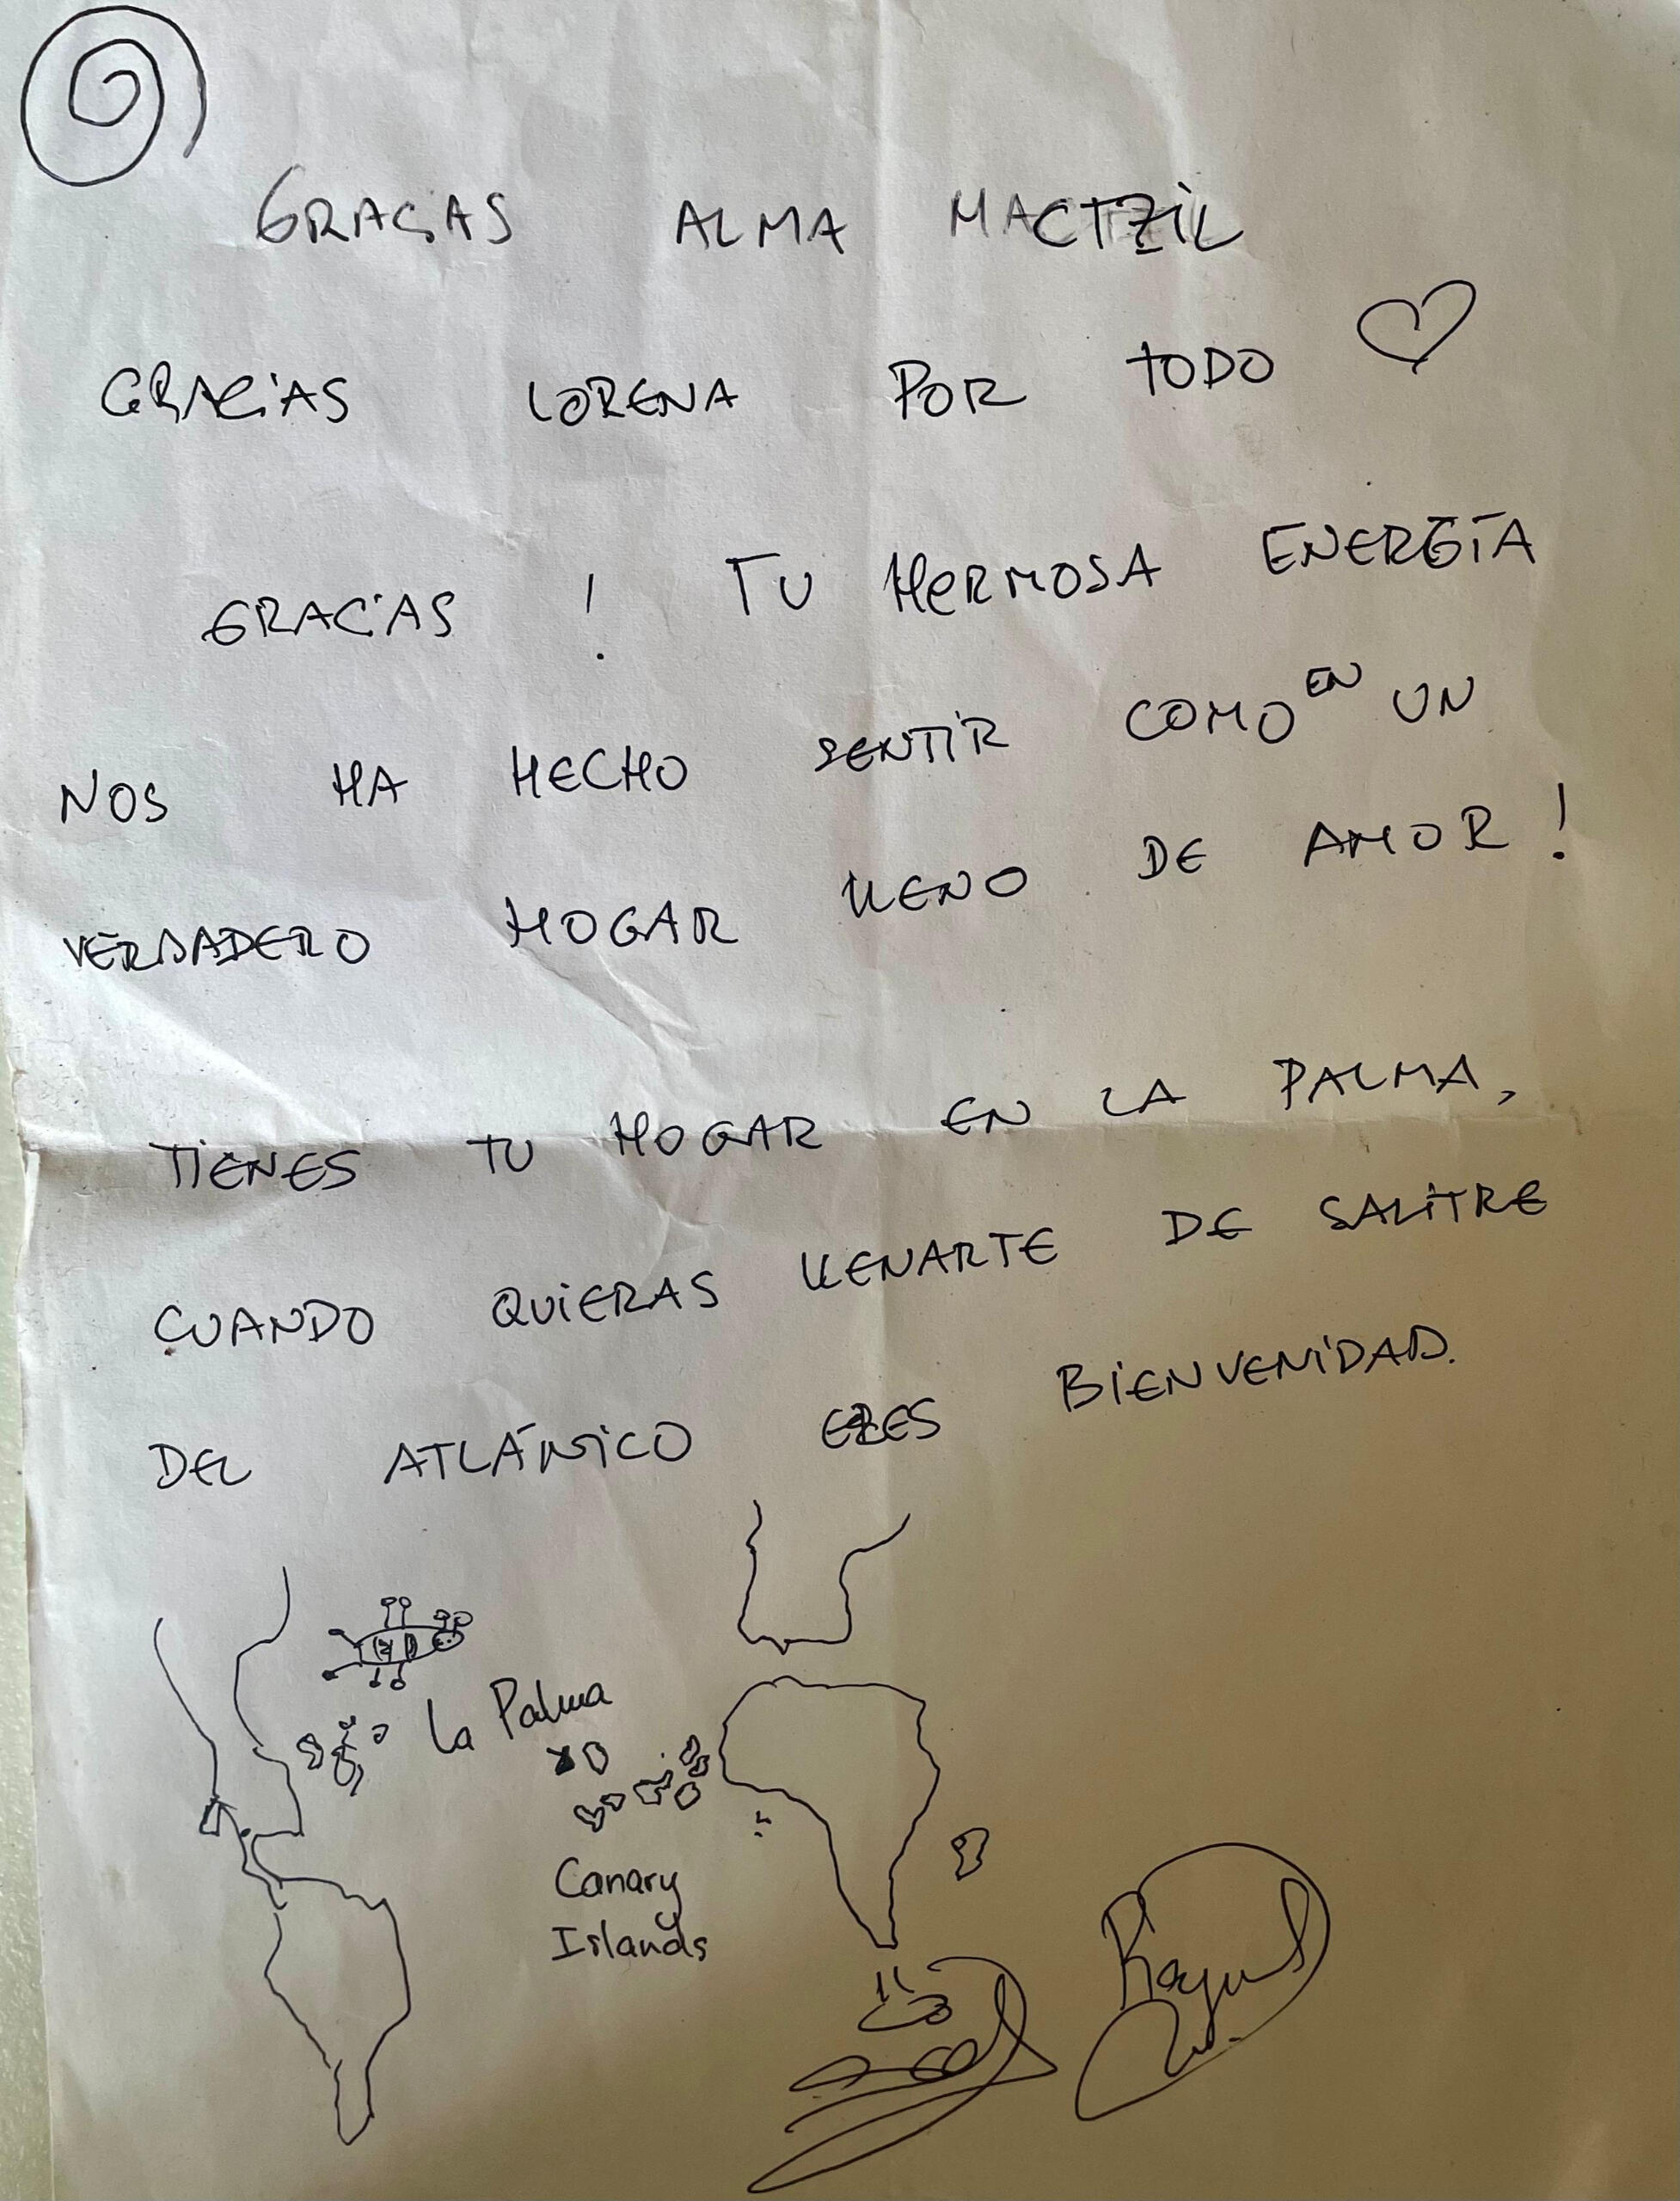 GRACIAS ALMA MACTZIL
GRACIAS LORENA POR TODO
GRACIAS ! TU HERMOSA ENERGÍA
NOS HA HECHO SENTIR COMO EN UN
VERDADERO HOGAR LLENO DE AMOR!
TIENES TU HOGAR EN LA PALMA,
CUANDO QUIERAS LLENARTE DE SALITRE
DEL ATLÁNTICO ERES BIENVENIDAD.
La Palma
Canary
Islands
Raquel